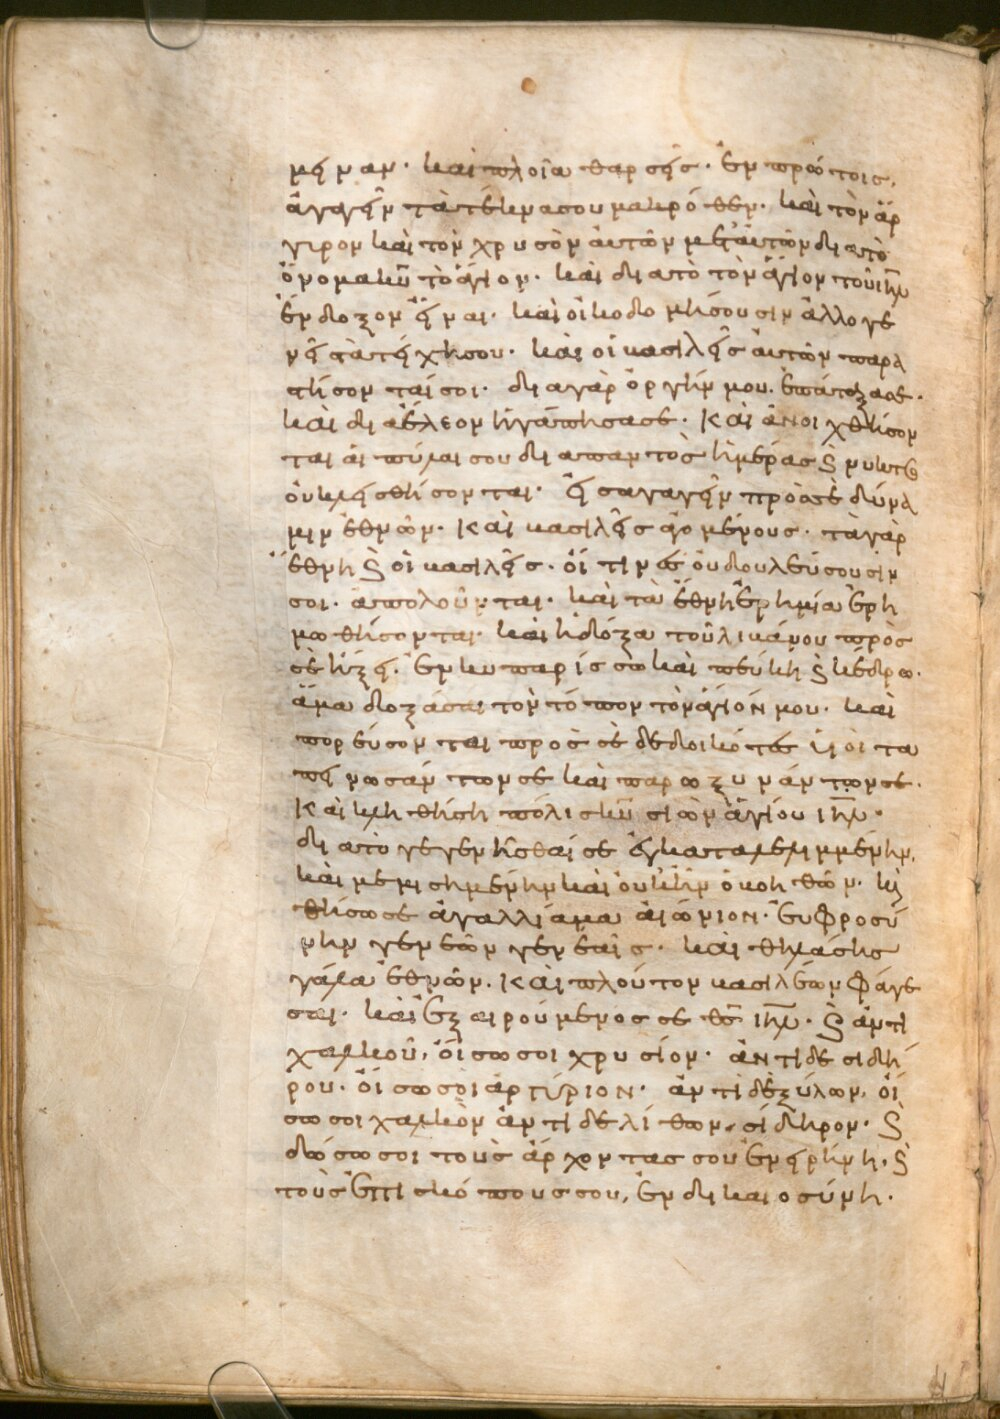 μειναν· καὶ πλοῖα θαρσεῖς· ἐν πρώτοις,
ἀγαγεῖν τὰ τέκνα σου μακρόθεν· καὶ τὸν ἄρ
γυρον καὶ τὸν χρυσὸν αὐτῶν μετ' αὐτῶν διατὸ
ὄνομα κ̅υ̅ τὸ ἅγιον· καὶ διατὸ τὸν ἅγιον τοῦ ι̅η̅λ̅
ἔνδοξον εἶναι· καὶ οἰκοδομήσουσιν ἀλλογε
νεῖς τὰ τείχη σου· καὶ οἱ βασιλεῖς αὐτῶν παρα
στήσονταί σοι· διαγὰρ ὀργήν μου. ἐπάταξά σε·
καὶ διαἔλεον ἠγάπησά σε· Καὶ ἀνοιχθήσον
ται αἱ πύλαι σου διαπαντὸς ἡμέρας ϗ νυκτὸς
οὐ κλεισθήσονται· εἰσαγαγεῖν πρὸς σὲ δύνα
μιν ἐθνῶν· Καὶ βασιλεῖς ἀγομένους· τὰ γὰρ
ἔθνη ϗ οἱ βασιλεῖς· οἵτινες οὐ δουλεύσουσίν
σοι· ἀπολοῦνται· καὶ τὰ ἔθνη ἐρημία ἐρη
μωθήσονται· καὶ ἡ δόξα τοῦ λιβάνου πρὸς
σὲ ἥξει· ἐν κυπαρίσσω καὶ πεύκη ϗ κέδρω·
ἅμα δοξάσαι τὸν τόπον τὸν ἅγιόν μου· καὶ
πορεύσονται πρὸς σὲ δεδοικότες υἱοὶ τα
πεινωσάντων σε καὶ παροξυνάντων σε·
Καὶ κληθήση πόλις κ̅υ̅ σιὼν ἁγίου ι̅η̅λ̅·
διατὸ γεγενῆσθαί σε ἐγκαταλελιμμένην,
καὶ μεμισημένην καὶ οὐκ ἦν ὁ βοηθῶν· ϗ
θήσω σε ἀγαλλίαμα αἰώνιον· εὐφροσύ
νην γενεῶν γενεαῖς· καὶ θηλάσεις
γάλα ἐθνῶν· Καὶ πλοῦτον βασιλέων φάγε
σαι· καὶ ἐξαιρούμενός σε θ̅ς̅ ι̅η̅λ̅· ϗ ἀντὶ
χαλκοῦ, οἴσω σοι χρυσίον· ἀντὶ δὲ σιδή
ρου· οἴσω σοι ἀργύριον· ἀντὶ δὲ ξύλων, οἴ
σω σοι χαλκὸν ἀντὶ δὲ λίθων, σίδηρον· ϗ
δώσω σοι τοὺς ἄρχοντας σου ἐν εἰρήνη, ϗ
τοὺς ἐπισκόπους σου, ἐν δικαιοσύνη·